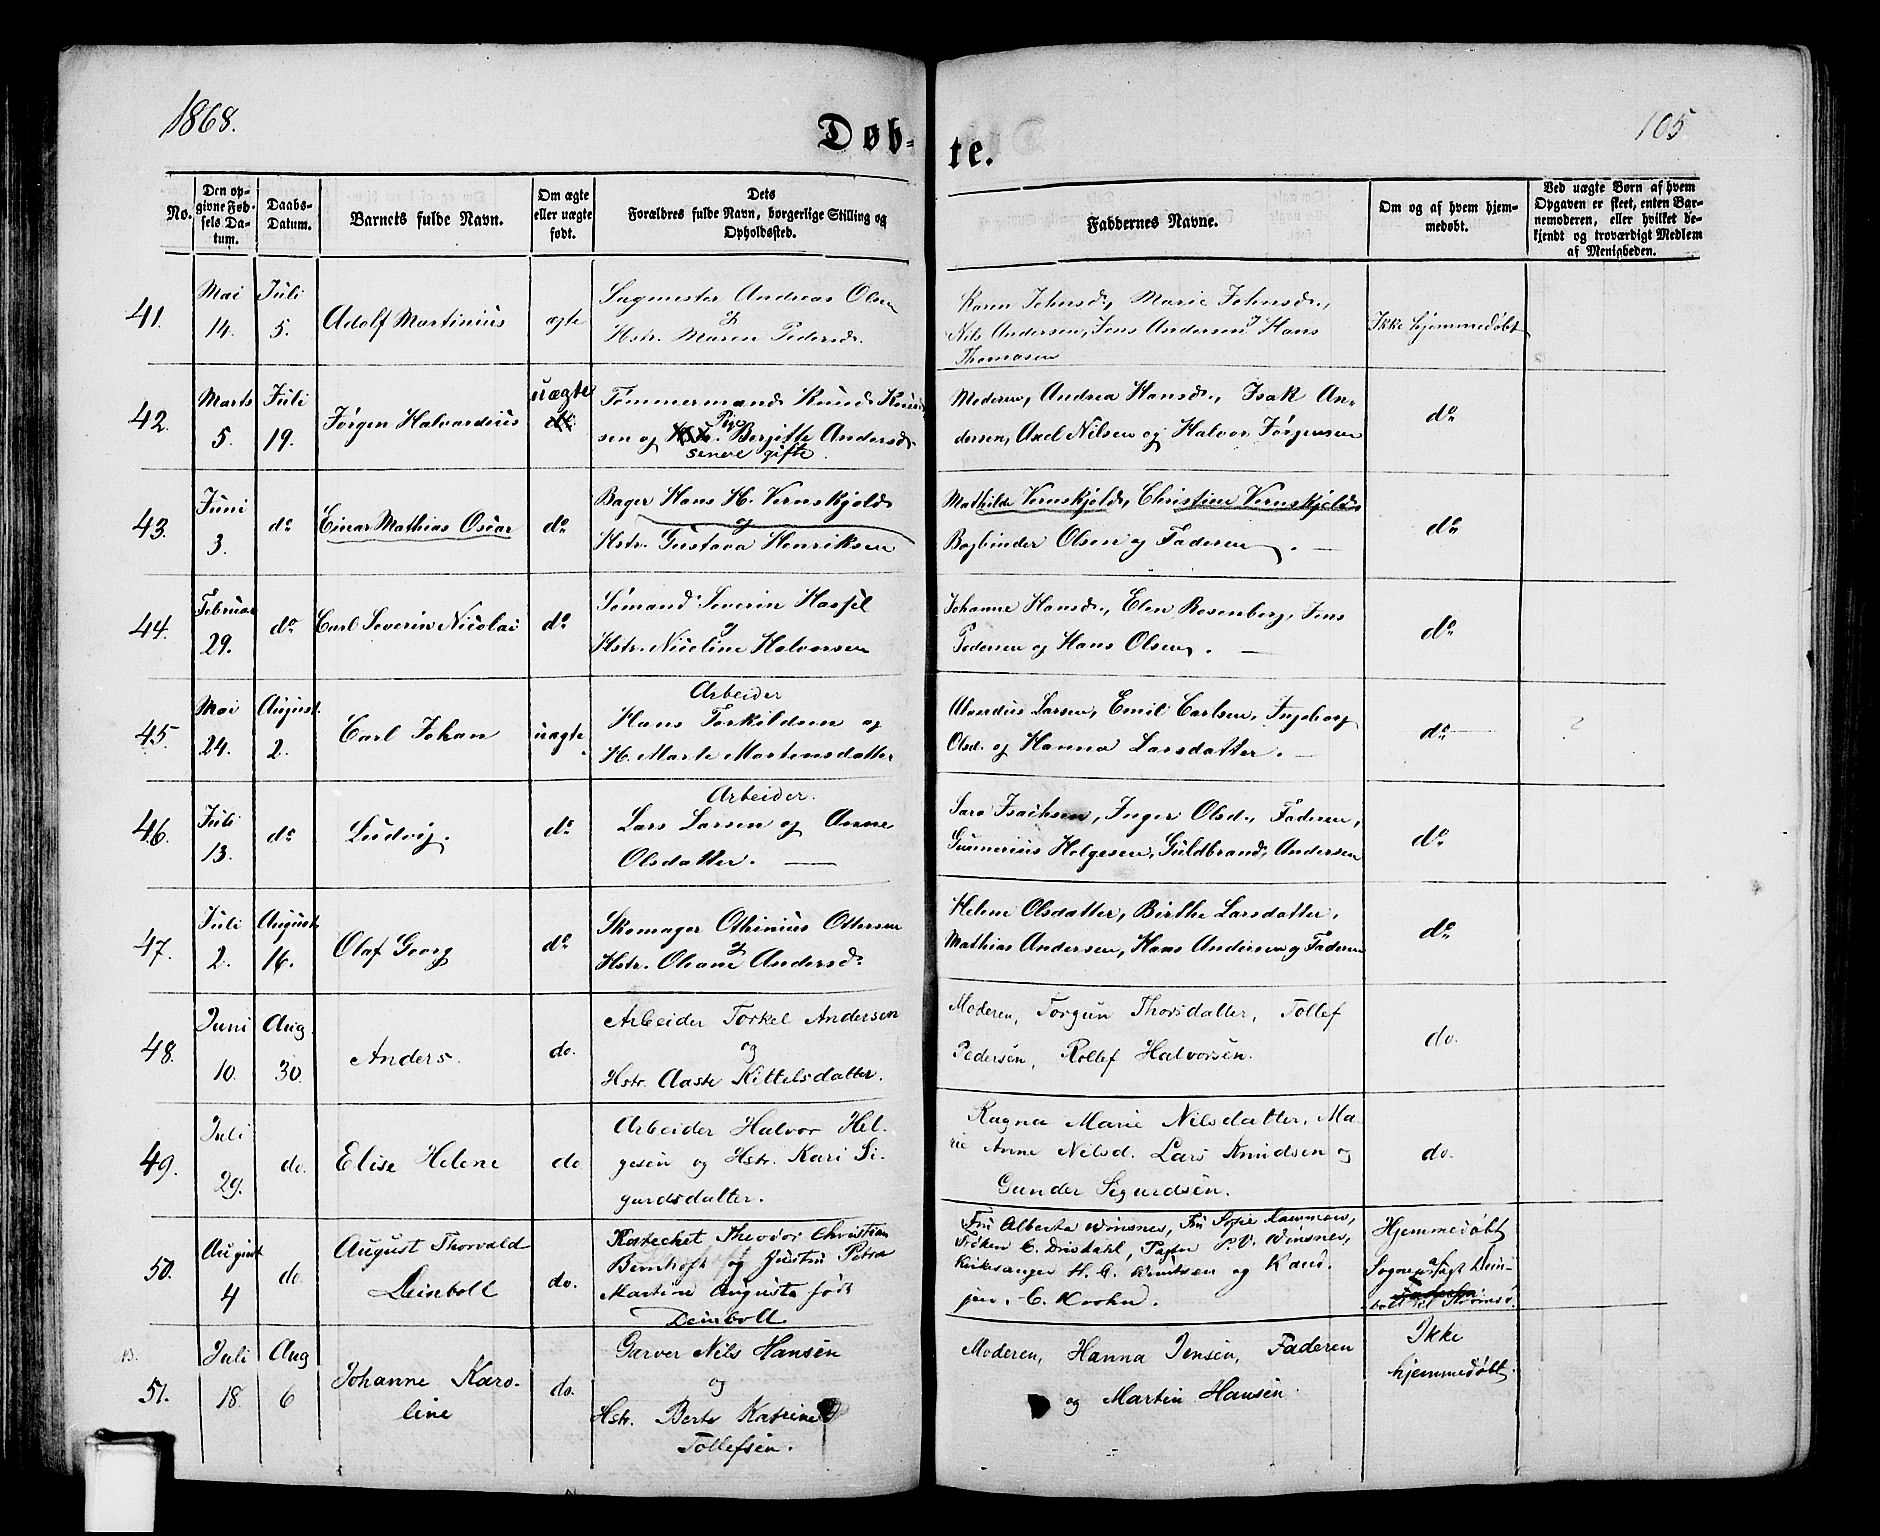 1868.
105
Døb-
te.
No.
Den op-
givne Fød-
sels Da-
tum.
Daabs-
Datum.
Barnets fulde Navn.
Om ægte
eller uægte
født.
Dets
Forældres fulde Navn, borgerlige Stilling og
Opholdssted.
Faddernes Navne.
Om og af hvem hjem-
medøbt.
Ved uægte Børn af hvem
Opgaven er skeet, enten Bar-
nemoderen, eller hvilket be-
kjendt og troværdigt Medlem
af Menigheden.
41.
Mai
14.
Juli
5.
Adolf Martinius
ægte
Sagmester Andreas Olsen
og
Hstr. Maren Pedersd.
Karen Johnsd., Marie Johnsd.,
Nils Andersen, Jens Andersen, Hans
Thomasen
Ikke hjemmedøbt
42.
Marts
5.
Juli
19.
Jørgen Halvardius
uægte
Tømmermand Knud Knud-
Pige
sen og Hstr. Berjitte Andersd.
senere gifte.
Moderen, Andrea Hansd., Isak An-
dersen, Axel Nilsen og Halvor Jørgensen
do
43.
Juni
3.
do
Einar Mathias Oscar
do
Bager Hans H. Vernskjold
og
Hstr. Gustava Henriksen
Mathilde Vernskjold, Christine Vernskjold,
Bogbinder Olsen og Faderen.
do
44.
Februar
29.
do
Carl Severin Nicolai
do
Sømand Severin Hassel
og
Hstr. Nicoline Halvorsen
Johanne Hansd., Elen Rosenberg, Jens
Pedersen og Hans Olsen.
do
45.
Mai
24.
August
2.
Carl Johan
uægte
Arbeider
Hans Torkildsen og
H. Marte Mortensdatter
Larsen, Emil Carlsen, Ingeborg
Olsd. og Hanna Larsdatter.
do
?
46.
Juli
13.
do
Ludvig.
do
Arbeider.
Lars Larsen og Anne
Olsdatter.
Sara Isachsen, Inger Olsd., Faderen,
Gunnerius Helgesen, Guldbrand Andersen
do
47.
Juli
2.
August
16.
Olaf Georg
do
Skomager Othinius Ottersen
og
Hstr. Oleane Andersd.
Helene Olsdatter, Birthe Larsdatter,
Mathias Andersen, Hans Andersen og Faderen
do
48.
Juni
10.
Aug.
30.
Anders.
do.
Arbeider Torkel Andersen
og
Hstr. Aaste Kittelsdatter.
Moderen, Torgun Thorsdatter, Tollef
Pedersen, Rollef Halvorsen.
do.
49.
Juli
29.
do.
Elise Helene
do
Arbeider Halvor Hel-
gesen og Hstr. Kari Si-
gurdsdatter.
Ragna Marie Nilsdatter, Ma-
rie Anne Nilsd. Lars Knudsen og
Gunder Sigurdsen.
do.
50.
August
4
do.
August Thorvald
Deinboll
do.
Katechet Theodor Christian
Bernhoft og Justin Petra
Martine Augusta født
Deinboll
Fru Alberta Winsnes, Fru Sofie Rammen,
Frøken C. Drisdahl, Pastor P. V. Winsnes,
Kirkesanger H. C. Knutsen og Kand.
C. Krohn.
Hjemmedøbt
af
Sognepr. Dein-
boll til Strømsø.
51.
Juli
18.
Aug
6
Johanne Karo-
line
do.
Garver Nils Hansen
og
Hstr. Berte Katrine
Tollefsen.
Moderen, Hanna Jensen, Faderen
og Martin Hansen.
Ikke
hjemmedøbt.